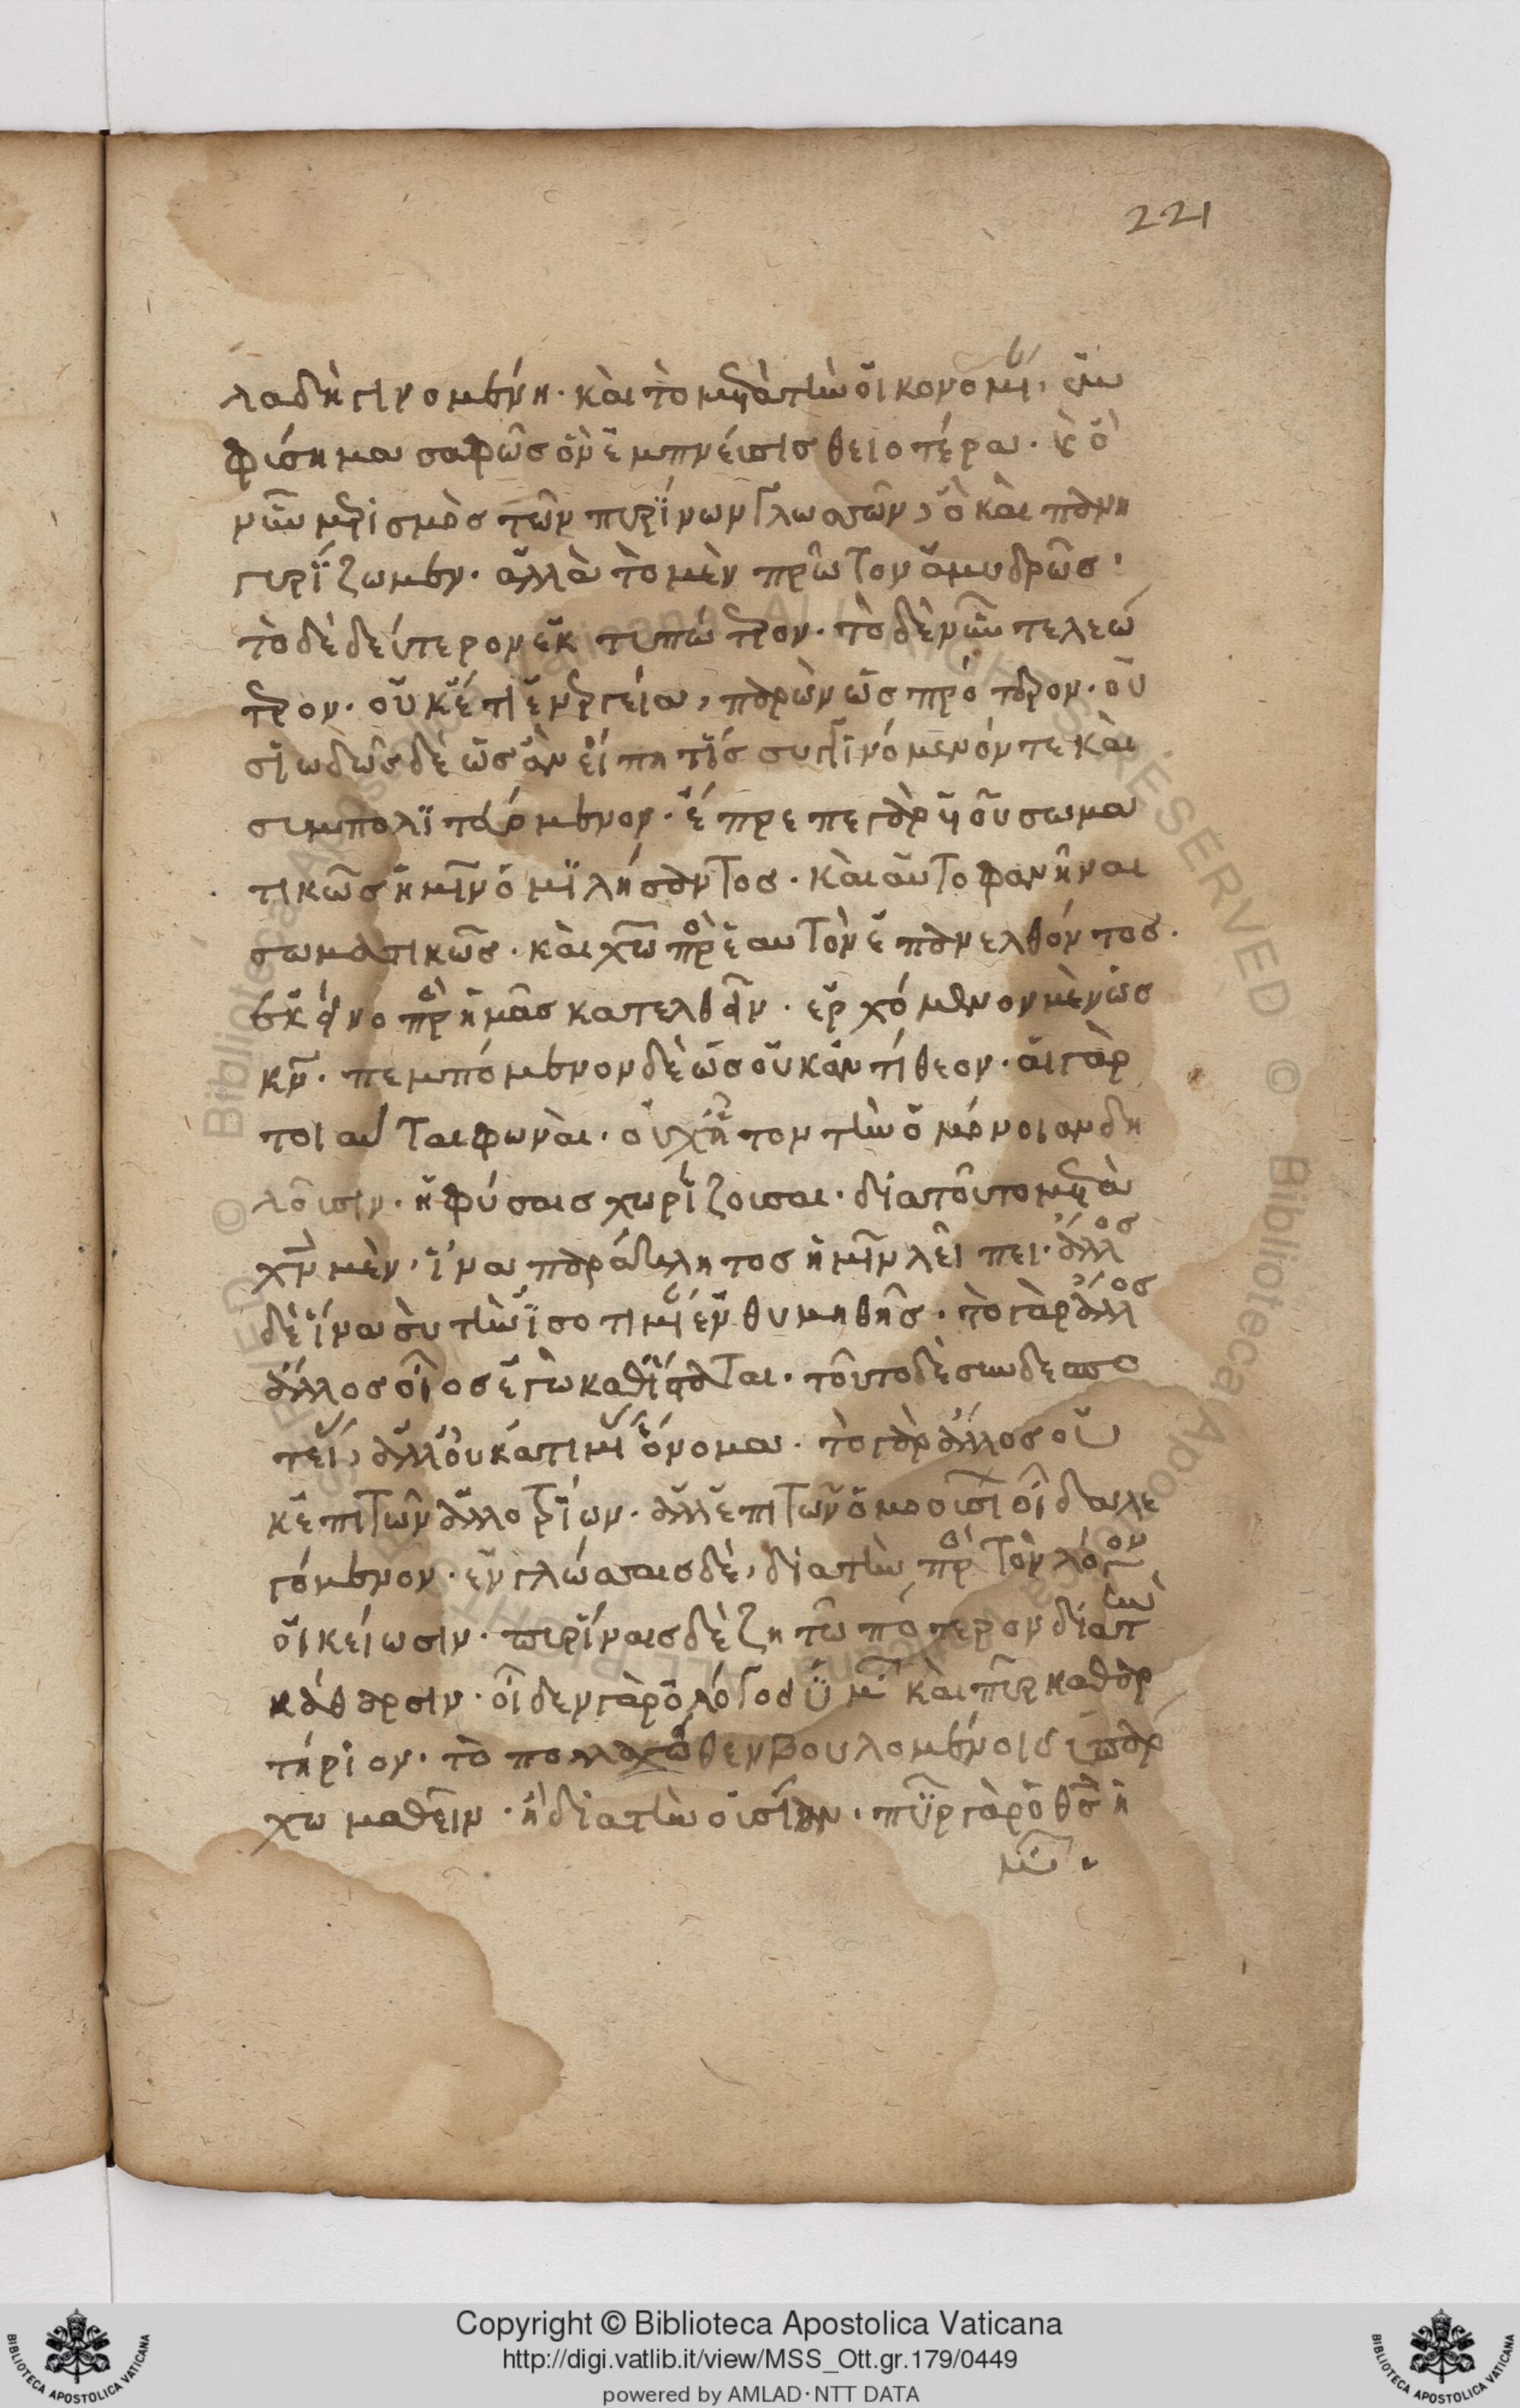 221
λαδὴ γινομένη. καὶ τὸ μετὰ τὴν οἰκονομί. ἐμ
φύσημα σαφῶς ὂν ἐμπνεύσις θειοτέρα. κ ὁ
νῦν μερισμὸς τῶν πυρίνων γλωσσῶν, ὃ καὶ πανη
γυρίζωμεν. ἀλλὰ τὸ μὲν πρῶτον ἀμυδρῶς.
τὸ δὲ δεύτερον ἐκτυπώτερον. τὸ δὲ νῦν τελεώ
τερον. οὐκέτι ἐνεργεία, παρὼν ὡς πρότερον. οὐ
σιωδῶς δὲ ὡς ἂν εἴπη τίς συγγινόμενόν τε καὶ
συμπολιτευόμενον. ἔπρεπε γὰρ υἱοῦ σωμα
τικῶς ἡμῖν ὁμιλήσαντος. καὶ αὐτὸ φανῆναι
σωματικῶς. καὶ χυ πρὸς ἑαυτὸν ἐπανελθόντος.
ἐκεῖνο πρὸς ἡμᾶς κατελθεῖν. ἐρχόμενον μὲν ὡς
κν. πεμπόμενον δὲ ὡς οὐκ ἀντίθεον. αἱ γὰρ
τοιαῦται φωναὶ. οὐχ ἧττον τὴν ὁμόνοιαν δη
λοῦσιν. ἢ φύσεις χωρίζουσαι. διὰ τοῦτο μετὰ
χν μὲν, ἵνα παράκλητος ἡμῖν λείπει. ἄλλος
δὲ ἵνα σὺ τὴν ἰσοτιμί ἐνθυμηθῆς. τὸ γὰρ ἄλλος
ἄλλος οἷος ἐγὼ καθίσταται. τοῦτο δὲ συνδεσπο
τεί, ἀλλ' οὐκ ἀτιμί ὄνομα. τὸ γὰρ ἄλλος οὐ
κ ἐπὶ τῶν ἀλλοτρίων. ἀλλ' ἐπὶ τῶν ὁμοουσί οἶδα λε
γόμενον. ἐν γλώσσαις δὲ, διὰ τὴν πρὸς τὸν λόγον
οἰκείωσιν. πυρίναις δὲ ζητῶ πότερον διὰ τὴν
κάθαρσιν. οἶδεν γὰρ ὁ λόγος ὑμ καὶ πῦρ καθαρ
τήριον. τὸ πολλαχόθεν βουλομένοις ὑπάρ
χω μαθεῖν. ἢ διὰ τὴν οὐσίαν. πῦρ γὰρ ὁ θς ἡ
μῶν.
Copyright © Biblioteca Apostolica Vaticana
http://digi.vatlib.it/view/MSS_Ott.gr.179/0449
powered by AMLAD·NTT DATA